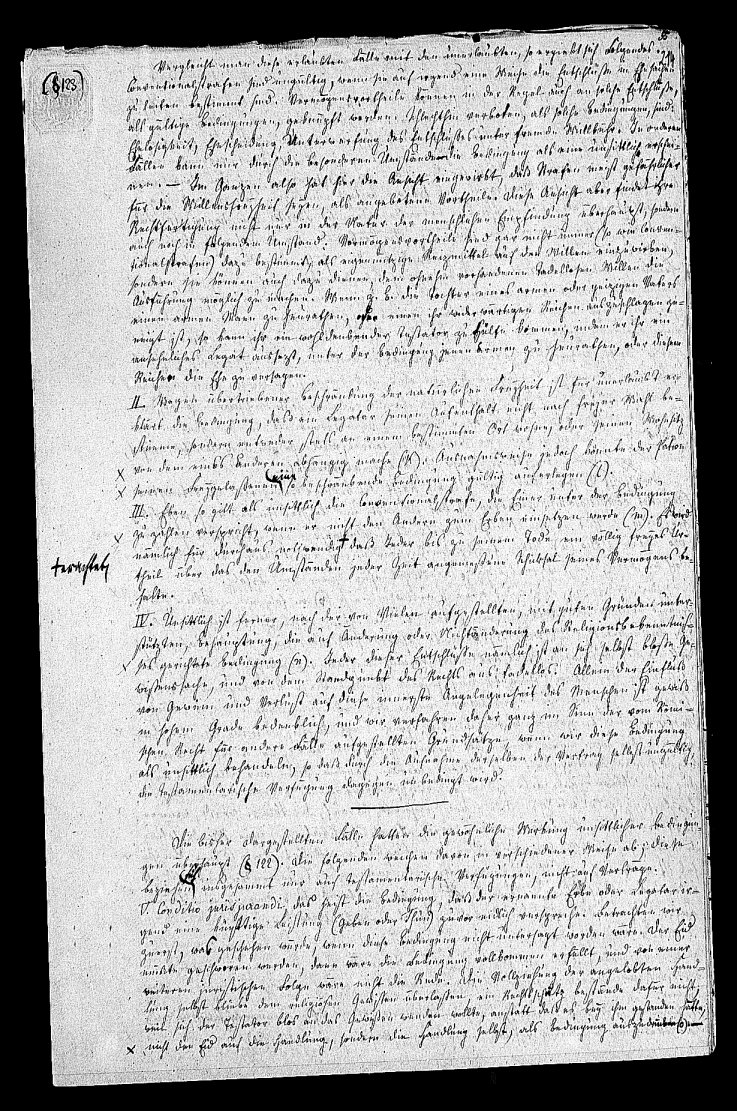 (§ 123)
Vergleicht man diese erlaubten Fälle mit den unerlaubten, so ergiebt sich Folgendes.
Conventionalstrafen sind ungültig, wenn sie auf irgend eine Weise die Entschlüsse in Ehesachen
zu leiten bestimmt sind. Vermögensvortheile können in der Regel auch an solche Entschlüsse,
als gültige Bedingungen, geknüpft werden. Schlechthin verboten, als solche Bedingungen, sind:
Ehelosigkeit, Ehescheidung, Unterwerfung des Entschlusses unter fremde Willkühr. In anderen
Fällen kann nur durch die besonderen Umstände die Bedingung als eine unsittliche erschei-
nen. — Im Ganzen also hat hier die Ansicht eingewirkt, daß Strafen meist gefährlicher
für die Willensfreiheit seyen, als angebotene Vortheile. Diese Ansicht aber findet ihre
Rechtfertigung nicht nur in der Natur der menschlichen Empfindung überhaupt, sondern
auch noch in folgendem Umstand. Vermögensvortheile sind gar nicht immer (so wie Conven-
tionalstrafen) dazu bestimmt, als eigennützige Reizmittel auf den Willen einzuwirken,
sondern sie können auch dazu dienen, dem ohnehin vorhandenen tadellosen Willen die
Ausführung möglich zu machen. Wenn z. B. die Tochter eines armen oder geizigen Vaters
einen armen Mann zu heurathen, oder einen ihr widerwärtigen Reichen auszuschlagen ge-
neigt ist, so kann ihr ein wohldenkender Testator zu Hülfe kommen, indem er ihr ein
ansehnliches Legat aussetzt, unter der Bedingung jenen Armen zu heurathen, oder diesem
Reichen die Ehe zu versagen.
II. Wegen übertriebener Beschränkung der natürlichen Freyheit ist für unerlaubt er-
klärt die Bedingung, daß ein Legatar seinen Aufenthalt nicht nach freyer Wahl be-
stimme, sondern entweder stets an einem bestimmten Ort wohne, oder seinen Wohnsitz
von dem eines Anderen abhängig mache (k). Ausnahmsweise jedoch könnte der Patron
seinem Freygelassenen eine so beschränkende Bedingung gültig auferlegen (l).
III. Eben so gilt als unsittlich die Conventionalstrafe, die Einer unter der Bedingung
zu zahlen verspricht, wenn er nicht den Andern zum Erben einsetzen werde (m). Es wird
nämlich für durchaus nothwendig † daß Jeder bis zu seinem Tode ein völlig freyes Ur-
† erachtet,
theil über das den Umständen jeder Zeit angemessene Schicksal seines Vermögens be-
halte.
IV. Unsittlich ist ferner, nach der von Vielen aufgestellten, mit guten Gründen unter-
stützten, Behauptung, die auf Änderung oder Nichtänderung des Religionsbekenntnis-
ses gerichtete Bedingung (n). Jeder dieser Entschlüsse nämlich ist an sich selbst bloße Ge-
wissenssache, und von dem Standpunkt des Rechts aus tadellos. Allein der Einfluß
von Gewinn und Verlust auf diese innerste Angelegenheit des Menschen ist gewiß
in hohem Grade bedenklich, und wir verfahren daher ganz im Sinn der vom Römi-
schen Recht für andere Fälle aufgestellten Grundsätze, wenn wir diese Bedingung
als unsittlich behandeln, so daß durch die Aufnahme derselben der Vertrag selbst ungültig,
die testamentarische Verfügung dagegen unbedingt wird.
Die bisher dargestellten Fälle hatten die gewöhnliche Wirkung unsittlicher Bedingun-
gen überhaupt (§ 122). Die folgenden weichen davon in verschiedener Weise ab; diese
beziehen sich insgesammt nur auf testamentarische Verfügungen, nicht auf Verträge.
V. Conditio jurisjurandi, das heißt die Bedingung, daß der ernannte Erbe oder Legatar ir-
gend eine künftige Leistung (Geben oder Thun) zuvor eidlich verspreche. Betrachten wir
zuerst, was geschehen würde, wenn diese Bedingung nicht untersagt worden wäre. Der Eid
müßte geschworen werden, dann wäre die Bedingung vollkommen erfüllt, und von einer
weiteren juristischen Folge wäre nicht die Rede. Die Vollziehung der angelobten Hand-
lung selbst bliebe dem religiösen Gewissen überlassen, ein Rechtsschutz bestände dafür nicht,
weil sich der Testator blos an das Gewissen wenden wollte, anstatt daß es bey ihm gestanden hätte,
nicht den Eid auf die Handlung, sondern die Handlung selbst, als Bedingung auszudrücken (o). —